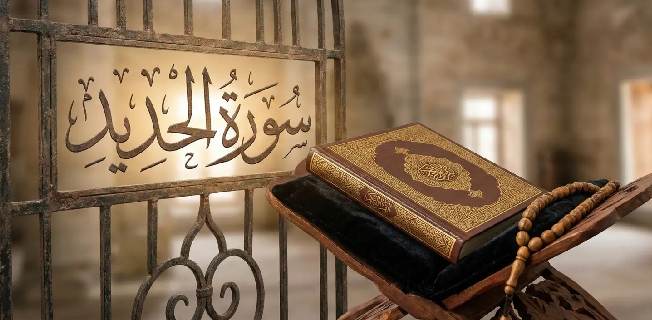 سُورَةُ الْحَدِيدِ